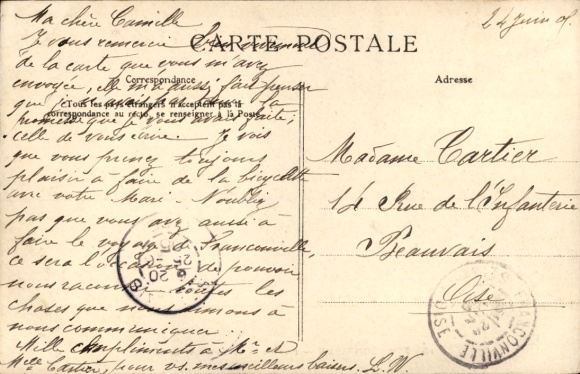 Ma chère Camille
24 Juin 05.
Je vous remercie bien vivement
CARTE POSTALE
de la carte que vous m'avez
Correspondance
Adresse
envoyée, elle m'a aussi fait penser
que je
la
(Tous les pays étrangers n'acceptent pas la
correspondance au recto, se renseigner à la Poste)
promesse que je vous avais faite;
celle de vous écrire. Je vois
que vous prenez toujours
plaisir à faire de la bicyclette
avec votre Mari. N'oubliez
pas que vous avez aussi à
faire le voyage de Franconville,
ce sera l'occasion de pouvoir
nous raconter toutes les
choses que nous aimons à
nous communiquer.
Mille compliments à Mr et
Mme Cartier, pour vs. mes meilleurs baisers. L. W.
Madame Cartier
14 Rue de l'Infanterie
Beauvais
Oise
FRANCONVILLE
OISE